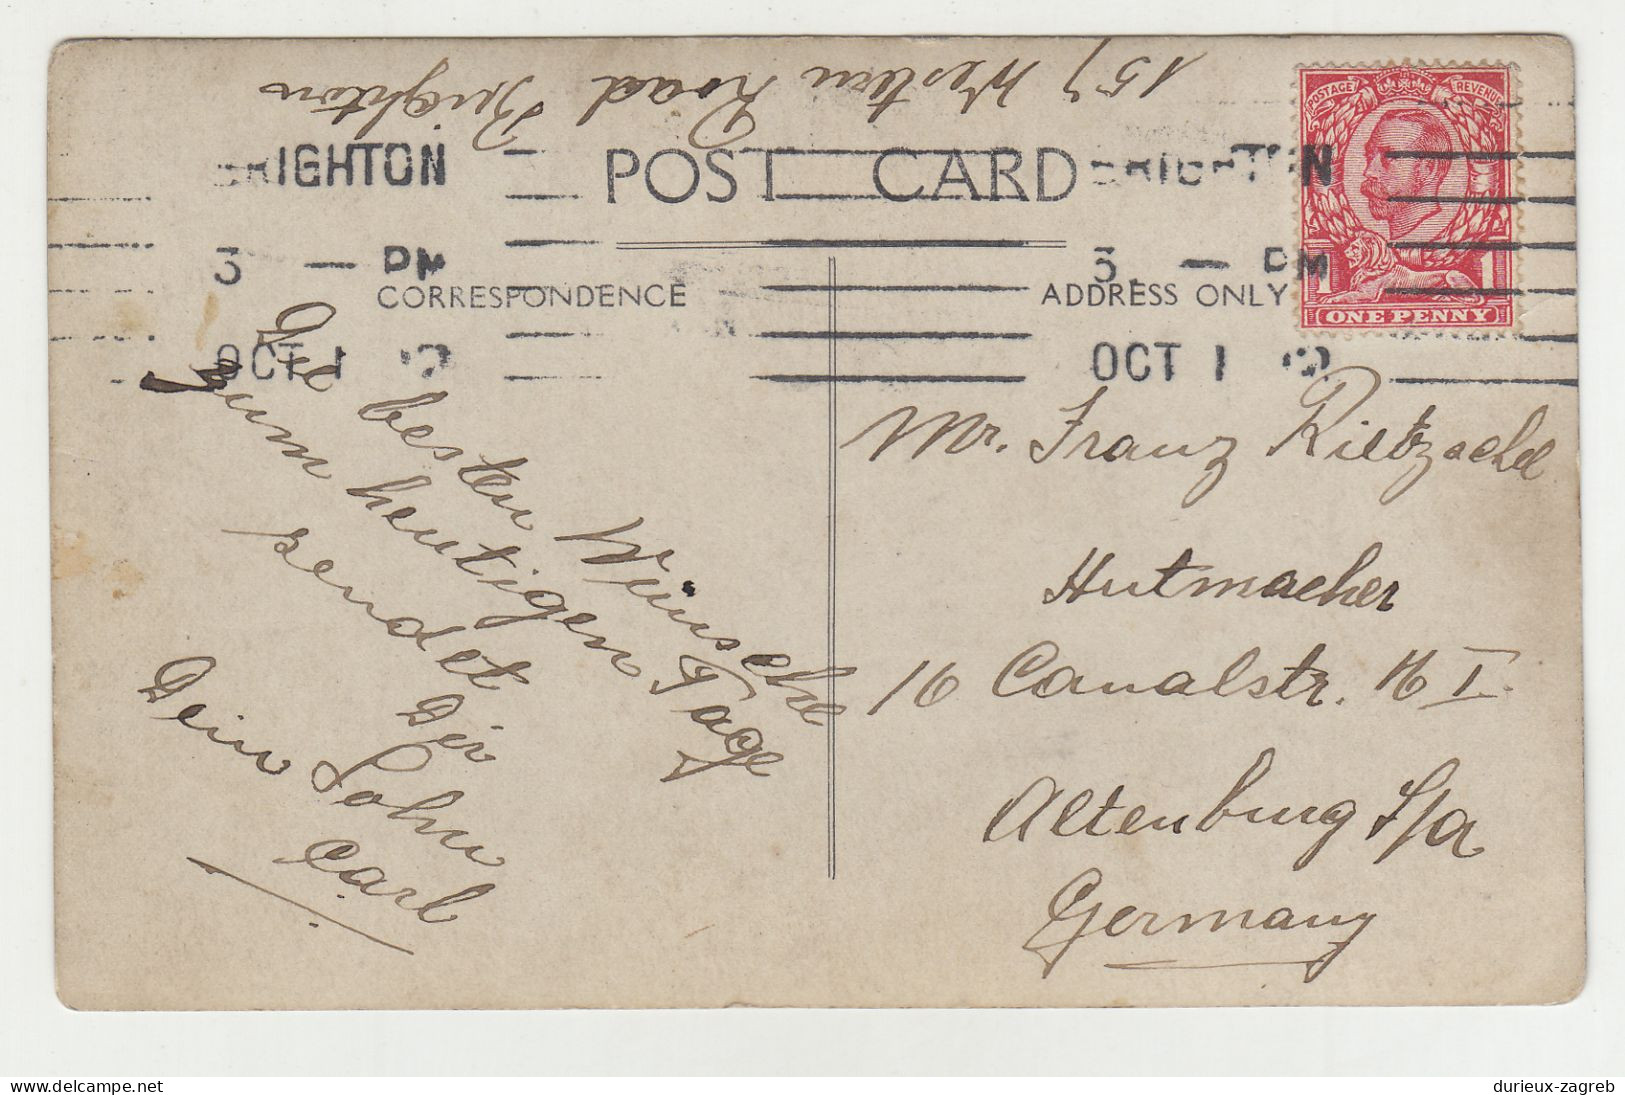 157 Western Road Brighton
BRIGHTON
BRIGHTON
POST CARD
3 — PM
3 — PM
CORRESPONDENCE
ADDRESS ONLY
OCT 1
OCT 1
POSTAGE
REVENUE
1
1
ONE PENNY
Die besten Wünsche
zum heutigen Tage
sendet Dir
Dein Sohn
Carl
Mr. Franz Rietzschel
Hutmacher
16 Canalstr. 16 I.
Altenburg S/A
Germany
durieux-zagreb